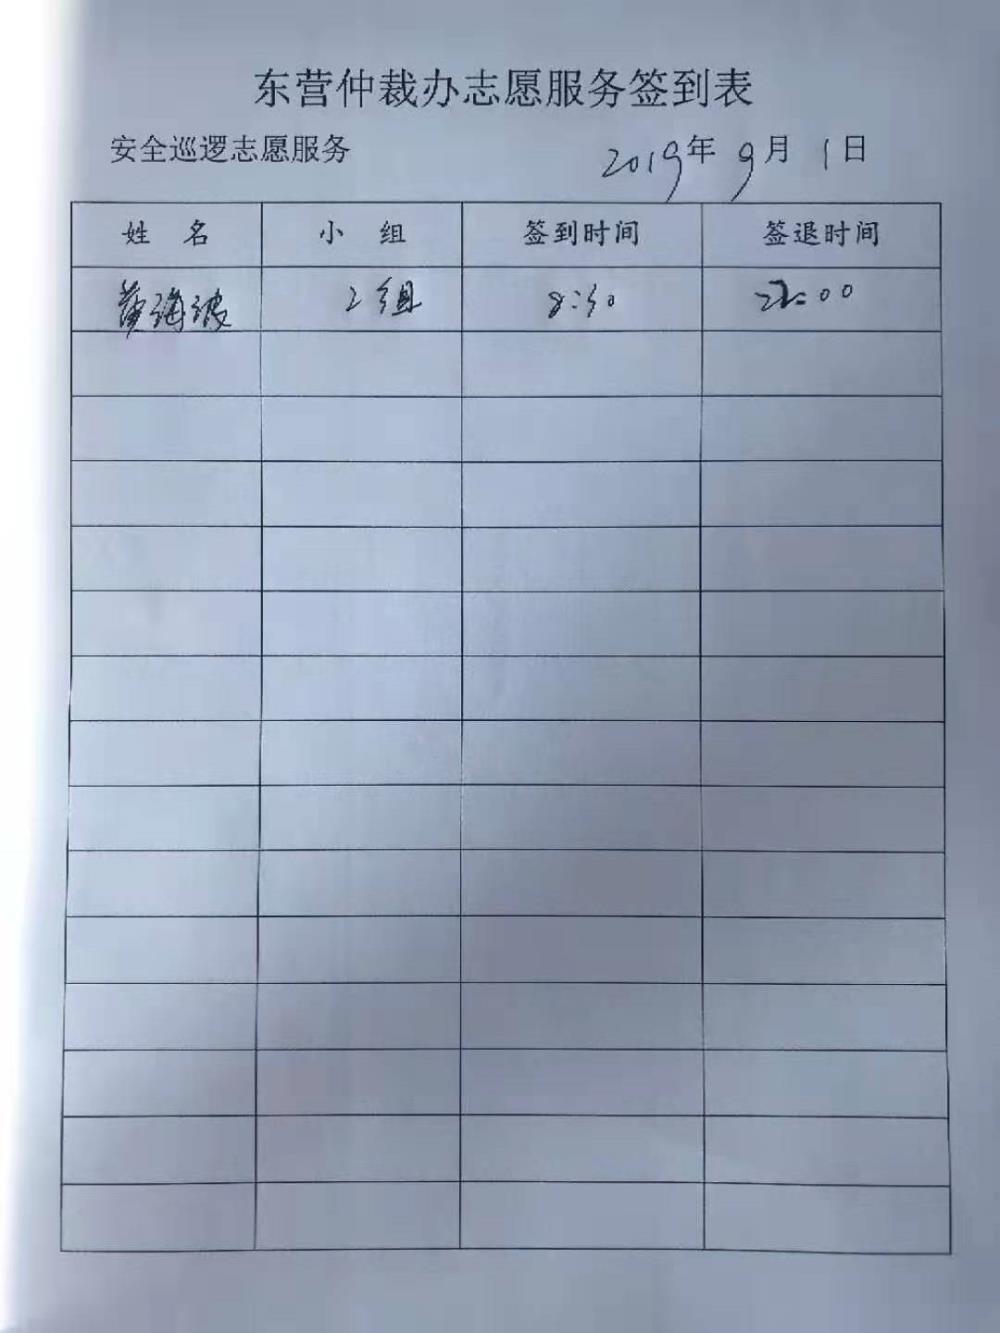 东营仲裁办志愿服务签到表
安全巡逻志愿服务 2019年 9月 1日
姓 名 小 组 签到时间 签退时间
海波 2组 8:30 22:00